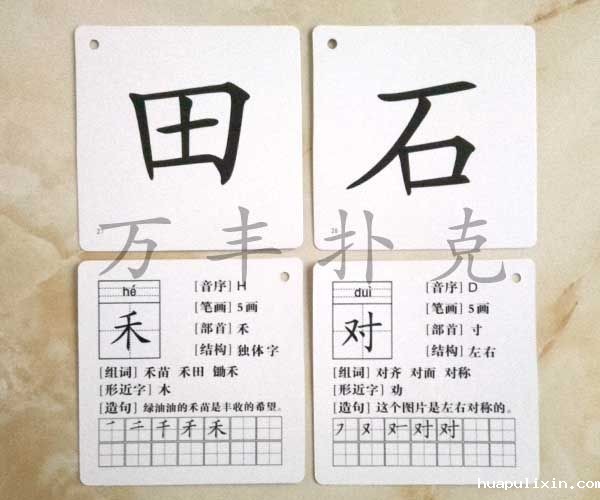 田
石
27
28
万丰扑克
hé
禾
[音序] H
[笔画] 5画
[部首] 禾
[结构] 独体字
[组词] 禾苗 禾田 锄禾
[形近字] 木
[造句] 绿油油的禾苗是丰收的希望。
一 二 千 禾 禾
duì
对
[音序] D
[笔画] 5画
[部首] 寸
[结构] 左右
[组词] 对齐 对面 对称
[形近字] 劝
[造句] 这个图片是左右对称的。
フ 又 对 对
www.huapulixin.com